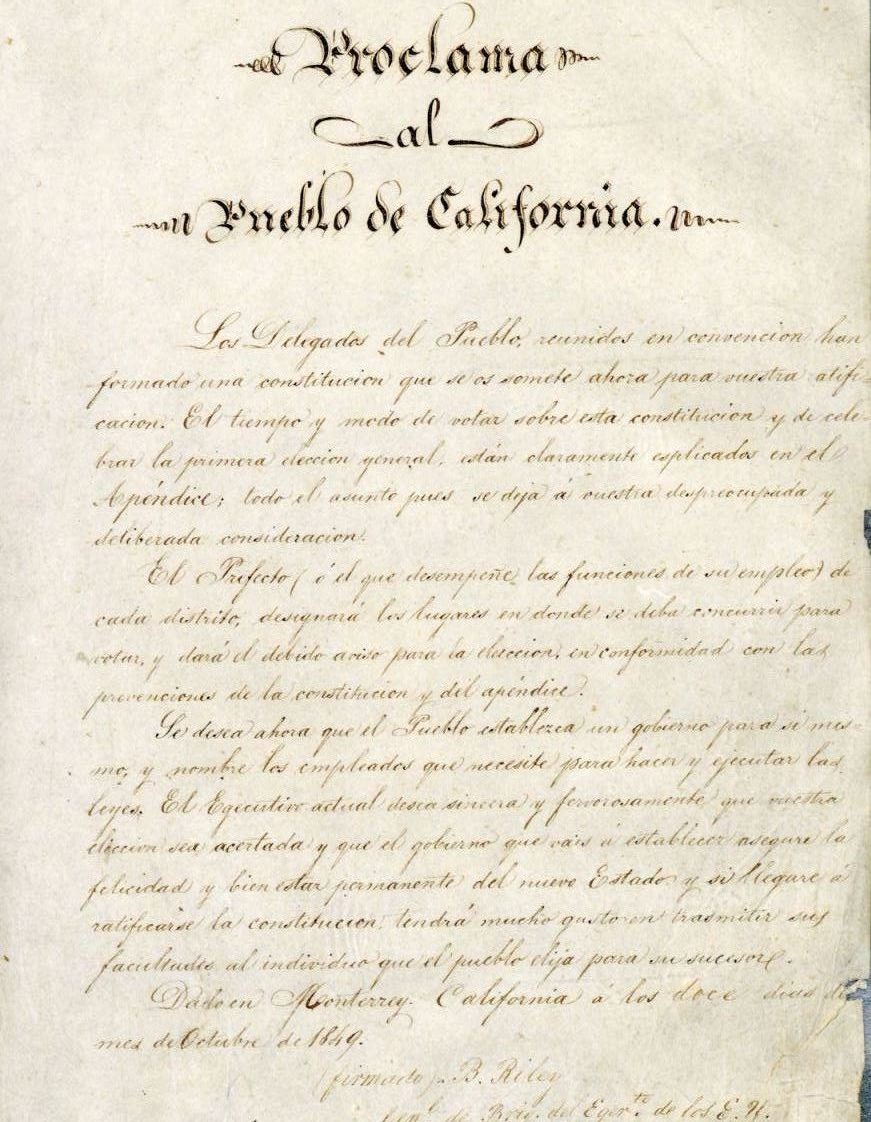 Proclama
al
Pueblo de California.
Los Delegados del Pueblo, reunidos en convencion han
formado una constitucion que se os somete ahora para vuestra atifi-
cacion. El tiempo y modo de votar sobre esta constitucion y de cele-
brar la primera eleccion general, están claramente esplicados en el
Apéndice; todo el asunto pues se deja á vuestra despreocupada y
deliberada consideracion.
El Prefecto (ó él que desempeñe las funciones de su empleo) de
cada distrito, designará los lugares en donde se deba concurrir para
votar, y dará el debido aviso para la eleccion, en conformidad con las
prevenciones de la constitucion y del apéndice.
Se desea ahora que el Pueblo establezca un gobierno para si mis-
mo, y nombre los empleados que necesite para hacer y ejecutar las
leyes. El Egecutivo actual desea sincera y fervorosamente que vuestra
eleccion sea acertada y que el gobierno que vais á establecer asegure la
felicidad y bien estar permanente del nuevo Estado y si llegare á
ratificarse la constitucion, tendrá mucho gusto en trasmitir sus
facultades al individuo que el pueblo elija para su sucesor.
Dado en Monterrey. California á los doce dias de
mes de Octubre de 1849.
(firmado). B. Riley
Genl. de Brig. del Egerto. de los E. U.